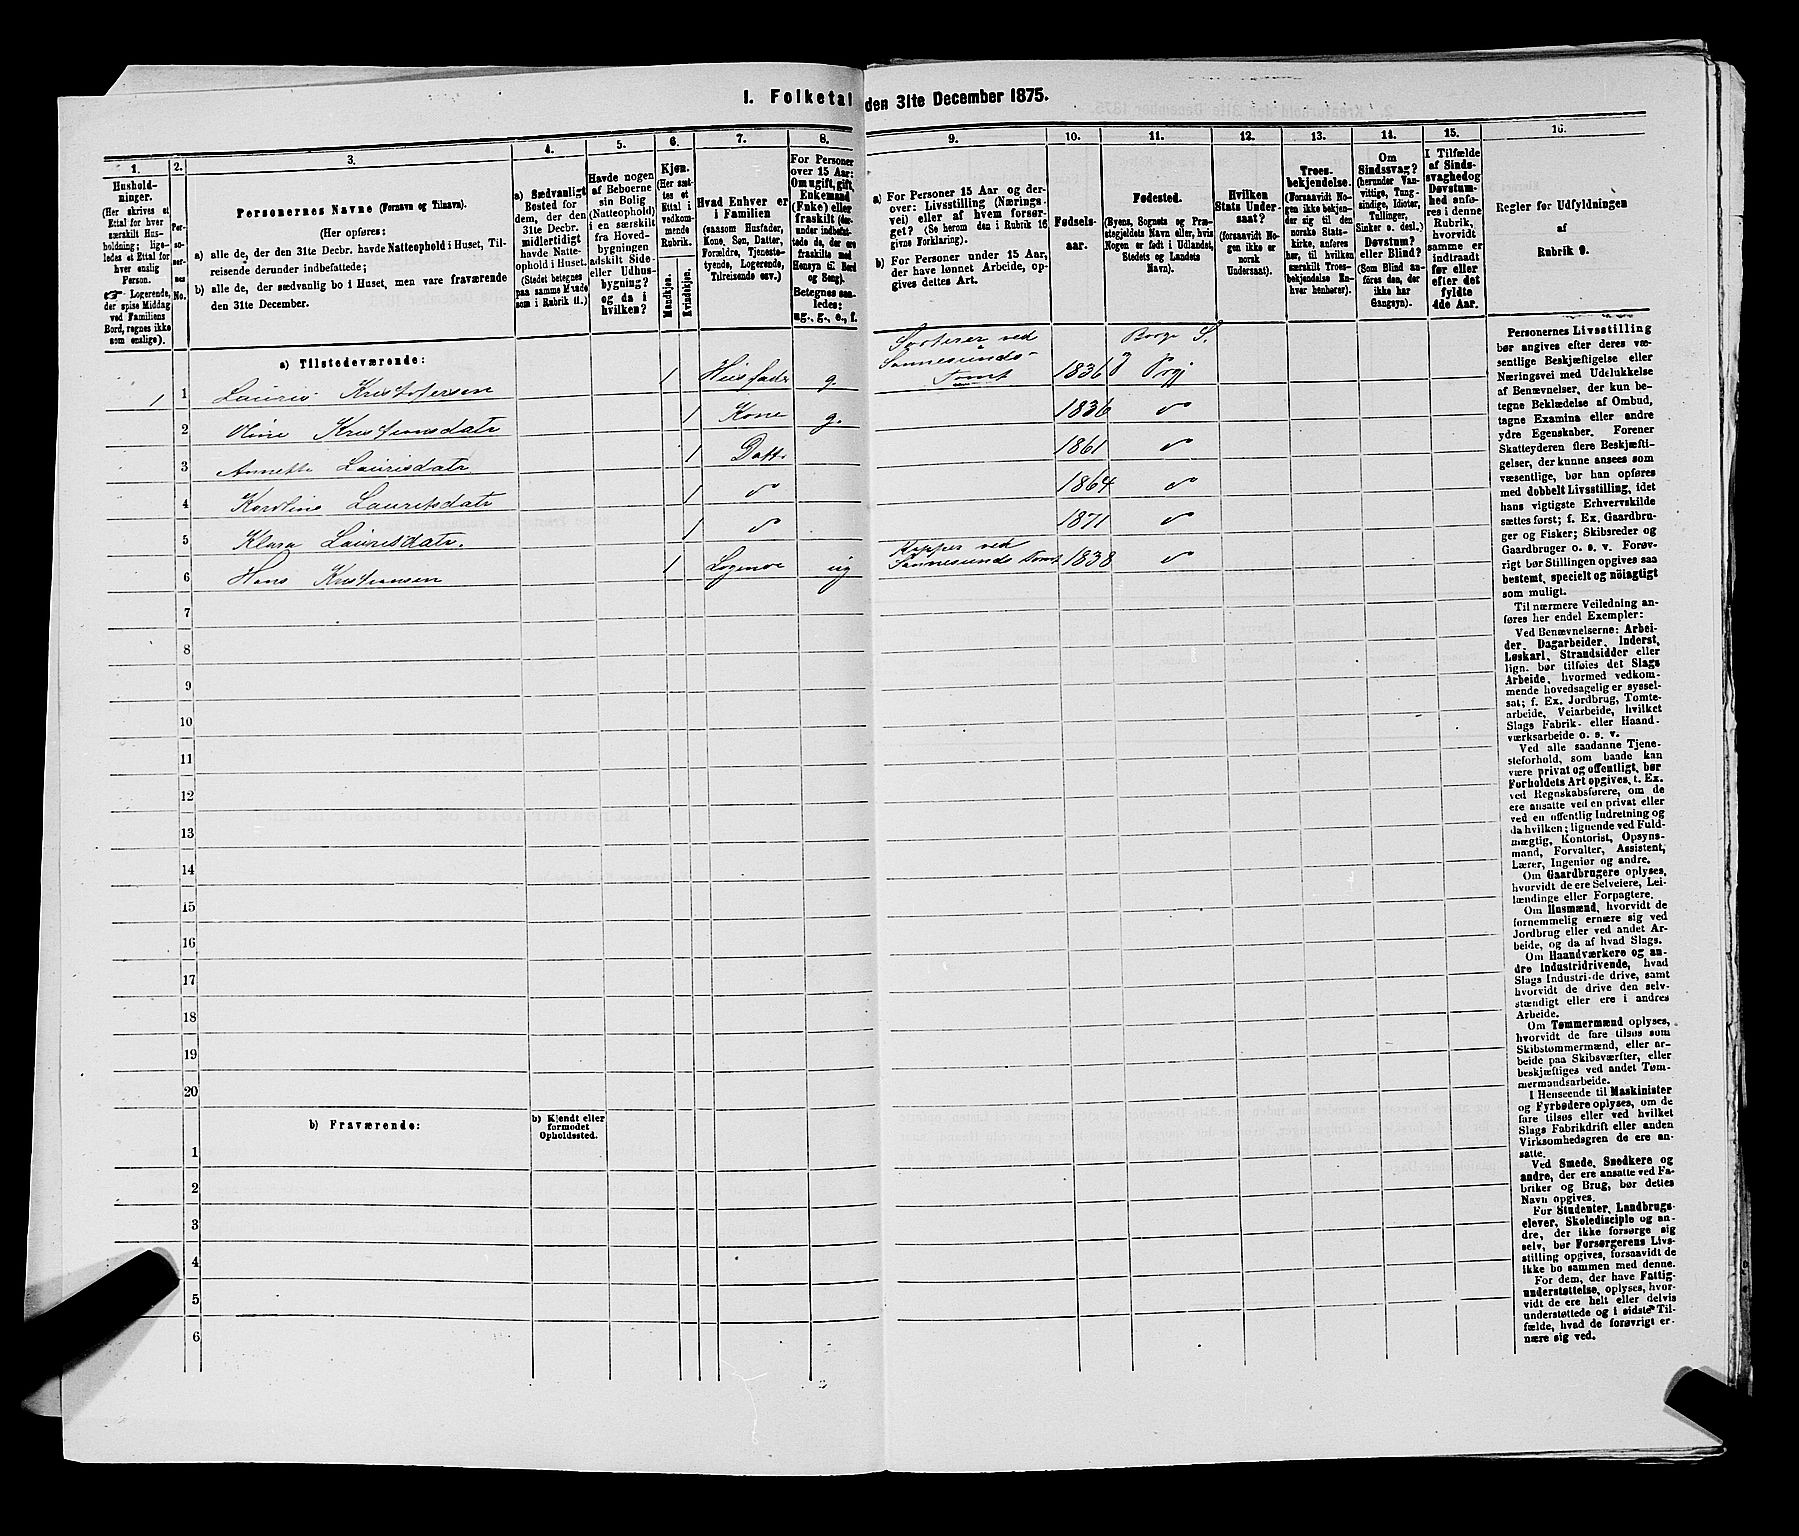 I. Folketal den 31te December 1875.
1.
Hushold-
ninger.
(Her skrives et
Ettal for hver
særskilt Hus-
holdning; lige-
ledes et Ettal for
hver enslig
Person.
☞ Logerende,
der spise Middag
ved Familiens
Bord, regnes ikke
som enslige).
2.
Per-
so-
ner-
nes
No.
3.
Personernes Navne (Fornavn og Tilnavn).
(Her opføres:
a) alle de, der den 31te Decbr. havde Natteophold i Huset, Til-
reisende derunder indbefattede;
b) alle de, der sædvanlig bo i Huset, men vare fraværende
den 31te December.
4.
a) Sædvanligt
Bosted for
dem, der den
31te Decbr.
midlertidigt
havde Natte-
ophold i Huset.
(Stedet betegnes
paa samme Maade
som i Rubrik 11.)
5.
Havde nogen
af Beboerne
sin Bolig
(Natteophold)
i en særskilt
fra Hoved-
bygningen
adskilt Side-
eller Udhus-
bygning?
og da i
hvilken?
6.
Kjøn.
(Her sæt-
tes et
Ettal i
vedkom-
mende
Rubrik.
Mandkjøn.
Kvindekjøn.
7.
Hvad Enhver er
i Familien
(saasom Husfader,
Kone, Søn, Datter,
Forældre, Tjeneste-
tyende, Logerende,
Tilreisende osv.)
8.
For Personer
over 15 Aar:
Om ugift, gift,
Enkemand
(Enke) eller
fraskilt (der-
under indbefat-
tede de, der ere
fraskilte med
Hensyn til Bord
og Seng).
Betegnes saa-
ledes:
ug., g., e., f.
9.
a) For Personer 15 Aar og der-
over: Livsstilling (Nærings-
vei) eller af hvem forsør-
get? (Se herom den i Rubrik 16
givne Forklaring).
b) For Personer under 15 Aar,
der have lønnet Arbeide, op-
gives dettes Art.
10.
Fødsels-
aar.
11.
Fødested.
(Byens, Sognets og Præ-
stegjeldets Navn eller, hvis
Nogen er født i Udlandet,
Stedets og Landets
Navn).
12.
Hvilken
Stats Under-
saat?
(forsaavidt No-
gen ikke er
norsk
Undersaat).
13.
Troes-
bekjendelse.
(Forsaavidt No-
gen ikke bekjen-
der sig til den
norske Stats-
kirke, anføres
her, til hvilken
særskilt Troes-
bekjendelse En-
hver henhører).
14.
Om
Sindssvag?
(herunder Van-
vittige, Tung-
sindige, Idioter,
Tullinger,
Sinker o. desl.)
Døvstum?
eller Blind?
(Som Blind an-
føres den, der
ikke har
Gangsyn).
15.
I Tilfælde
af Sinds-
svaghed og
Døvstum-
hed anfø-
res i denne
Rubrik,
hvorvidt
samme er
indtraadt
før eller
efter det
fyldte
4de Aar.
16.
Regler for Udfyldningen
af
Rubrik 9.
a) Tilstedeværende:
1 1 Lauris Kristofersen 1 Husfader g. Sorterer ved Sannesunds-Tomt 1836 Borge S.
2 Oline Kristiansdatr 1 Kone g. 1836 "
3 Annette Laurisdatr 1 Datt. 1861 "
4 Karoline Lauritsdatr 1 " 1864 "
5 Klara Laurisdatr. 1 " 1871 "
6 Hans Kristiansen 1 Logerende ug ved Sannesunds Tomt 1838 "
7
8
9
10
11
12
13
14
15
16
17
18
19
20
b) Fraværende:
b) Kjendt eller
formodet
Opholdssted.
1
2
3
4
5
6
Personernes Livsstilling
bør angives efter deres væ-
sentlige Beskjæftigelse eller
Næringsvei med Udelukkelse
af Benævnelser, der kun be-
tegne Beklædelse af Ombud,
tagne Examina eller andre
ydre Egenskaber. Forener
Skatteyderen flere Beskjæfti-
gelser, der kunne ansees som
væsentlige, bør han opføres
med dobbelt Livsstilling, idet
hans vigtigste Erhvervskilde
sættes først; f. Ex. Gaardbru-
ger og Fisker; Skibsreder og
Gaardbruger o. s. v. Forøv-
rigt bør Stillingen opgives saa
bestemt, specielt og nøiagtigt
som muligt.
Til nærmere Veiledning an-
føres her endel Exempler:
Ved Benævnelserne: Arbei-
der, Dagarbeider, Inderst,
Løskarl, Strandsidder eller
lign. bør tilføies det Slags
Arbeide, hvormed vedkom-
mende hovedsagelig er syssel-
sat; f. Ex. Jordbrug, Tomte-
arbeide, Veiarbeide, hvilket
Slags Fabrik- eller Haand-
værksarbeide o. s. v.
Ved alle saadanne Tjene-
steforhold, som baade kan
være privat og offentligt, bør
Forholdets Art opgives, t. Ex.
ved Regnskabsførere, om de
ere ansatte ved en privat eller
ved en offentlig Indretning og
da hvilken; lignende ved Fuld-
mægtig, Kontorist, Opsyns-
mand, Forvalter, Assistent,
Lærer, Ingeniør og andre.
Om Gaardbrugere oplyses,
hvorvidt de ere Selveiere, Lei-
lændinge eller Forpagtere.
Om Husmænd, hvorvidt de
fornemmelig ernære sig ved
Jordbrug eller ved andet Ar-
beide, og da af hvad Slags.
Om Haandværkere og an-
dre Industridrivende, hvad
Slags Industri de drive, samt
hvorvidt de drive den selv-
stændigt eller ere i andres
Arbeide.
Om Tømmermænd oplyses,
hvorvidt de fare tilsøs som
Skibstømmermænd, eller ar-
beide paa Skibsværfter, eller
beskjæftiges ved andet Tøm-
mermandsarbeide.
I Henseende til Maskinister
og Fyrbødere oplyses, om de
fare tilsøs eller ved hvilket
Slags Fabrikdrift eller anden
Virksomhedsgren de ere an-
satte.
Ved Smede, Snedkere og
andre, der ere ansatte ved Fa-
briker og Brug, bør dettes
Navn opgives.
For Studenter, Landbrugs-
elever, Skoledisciple og an-
dre, der ikke forsørge sig
selv, bør Forsørgerens Livs-
stilling opgives, forsaavidt de
ikke bo sammen med denne.
For dem, der have Fattig-
understøttelse, oplyses, hvor-
vidt de ere helt eller delvis
understøttede og i sidste Til-
fælde, hvad de forøvrigt er-
nære sig ved.